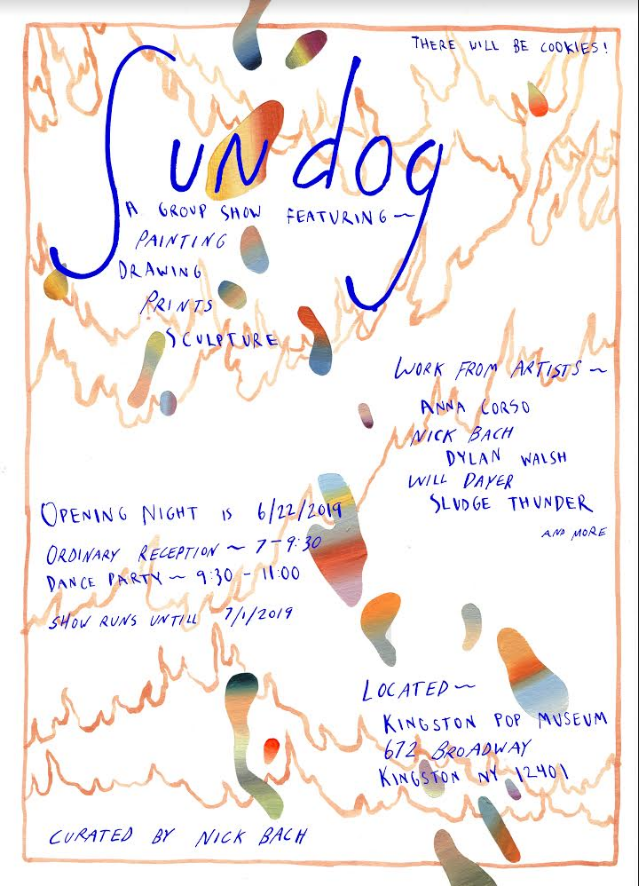 THERE WILL BE COOKIES!
Sundog
A GROUP SHOW FEATURING ~
PAINTING
DRAWING
PRINTS
SCULPTURE
WORK FROM ARTISTS ~
ANNA CORSO
NICK BACH
DYLAN WALSH
WILL DAYER
SLUDGE THUNDER
AND MORE
OPENING NIGHT IS 6/22/2019
ORDINARY RECEPTION ~ 7-9:30
DANCE PARTY ~ 9:30 - 11:00
SHOW RUNS UNTILL 7/1/2019
LOCATED ~
KINGSTON POP MUSEUM
672 BROADWAY
KINGSTON NY 12401
CURATED BY NICK BACH